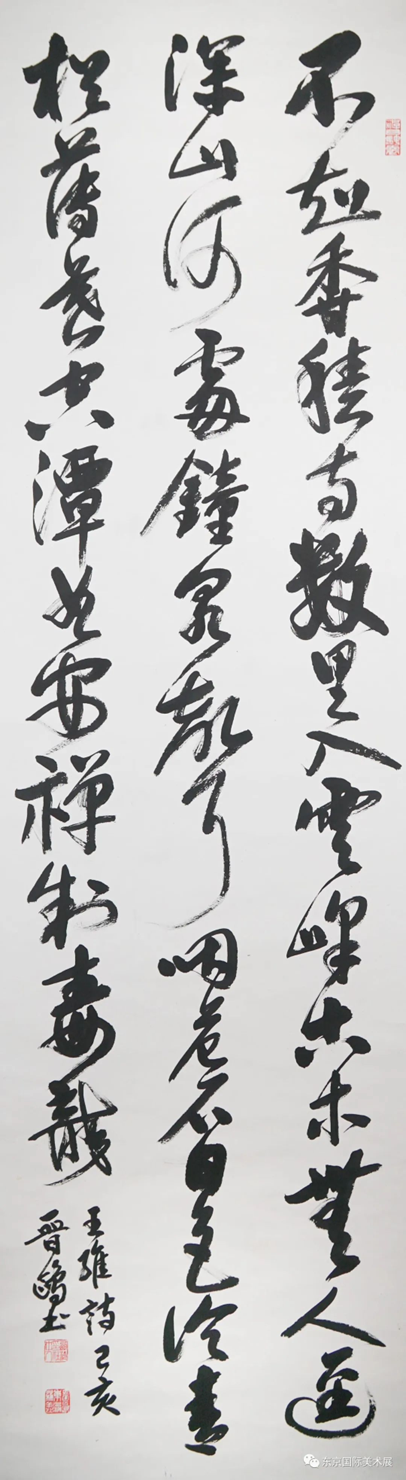 不知香積寺數里入雲峰古木無人逕
深山何處鐘泉聲咽危石日色冷青
松薄暮空潭曲安禪制毒龍
王維詩己亥
晉鷗書
东京国际美术展